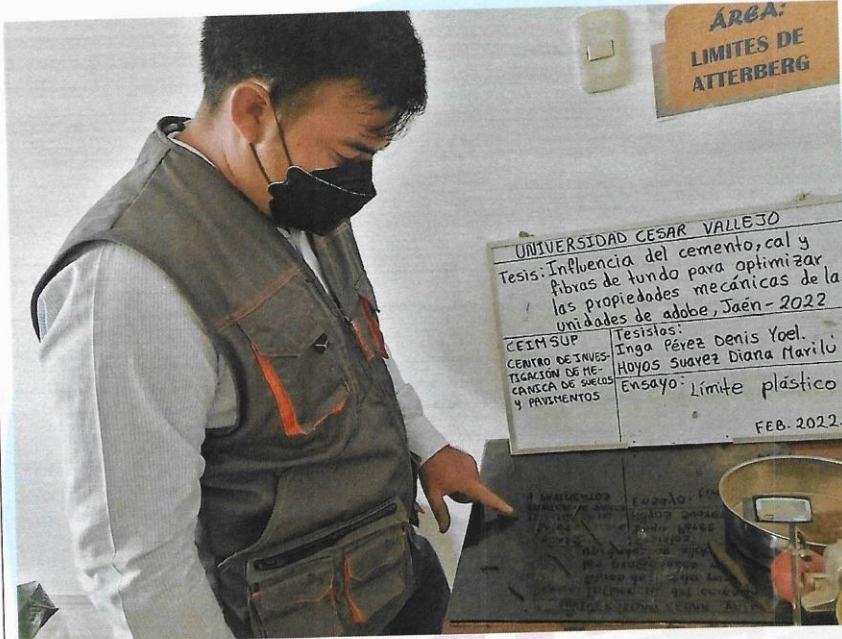 ÁREA:
LIMITES DE
ATTERBERG
UNIVERSIDAD CESAR VALLEJO
Tesis: Influencia del cemento, cal y
fibras de tundo para optimizar
las propiedades mecánicas de la
unidades de adobe, Jaén - 2022
CEIMSUP
CENTRO DE INVES-
TIGACIÓN DE ME-
CANICA DE SUELOS
Y PAVIMENTOS
Tesistas:
Inga Pérez Denis Yoel.
Hoyos Suarez Diana Marilú
Ensayo: Límite plástico
FEB. 2022.